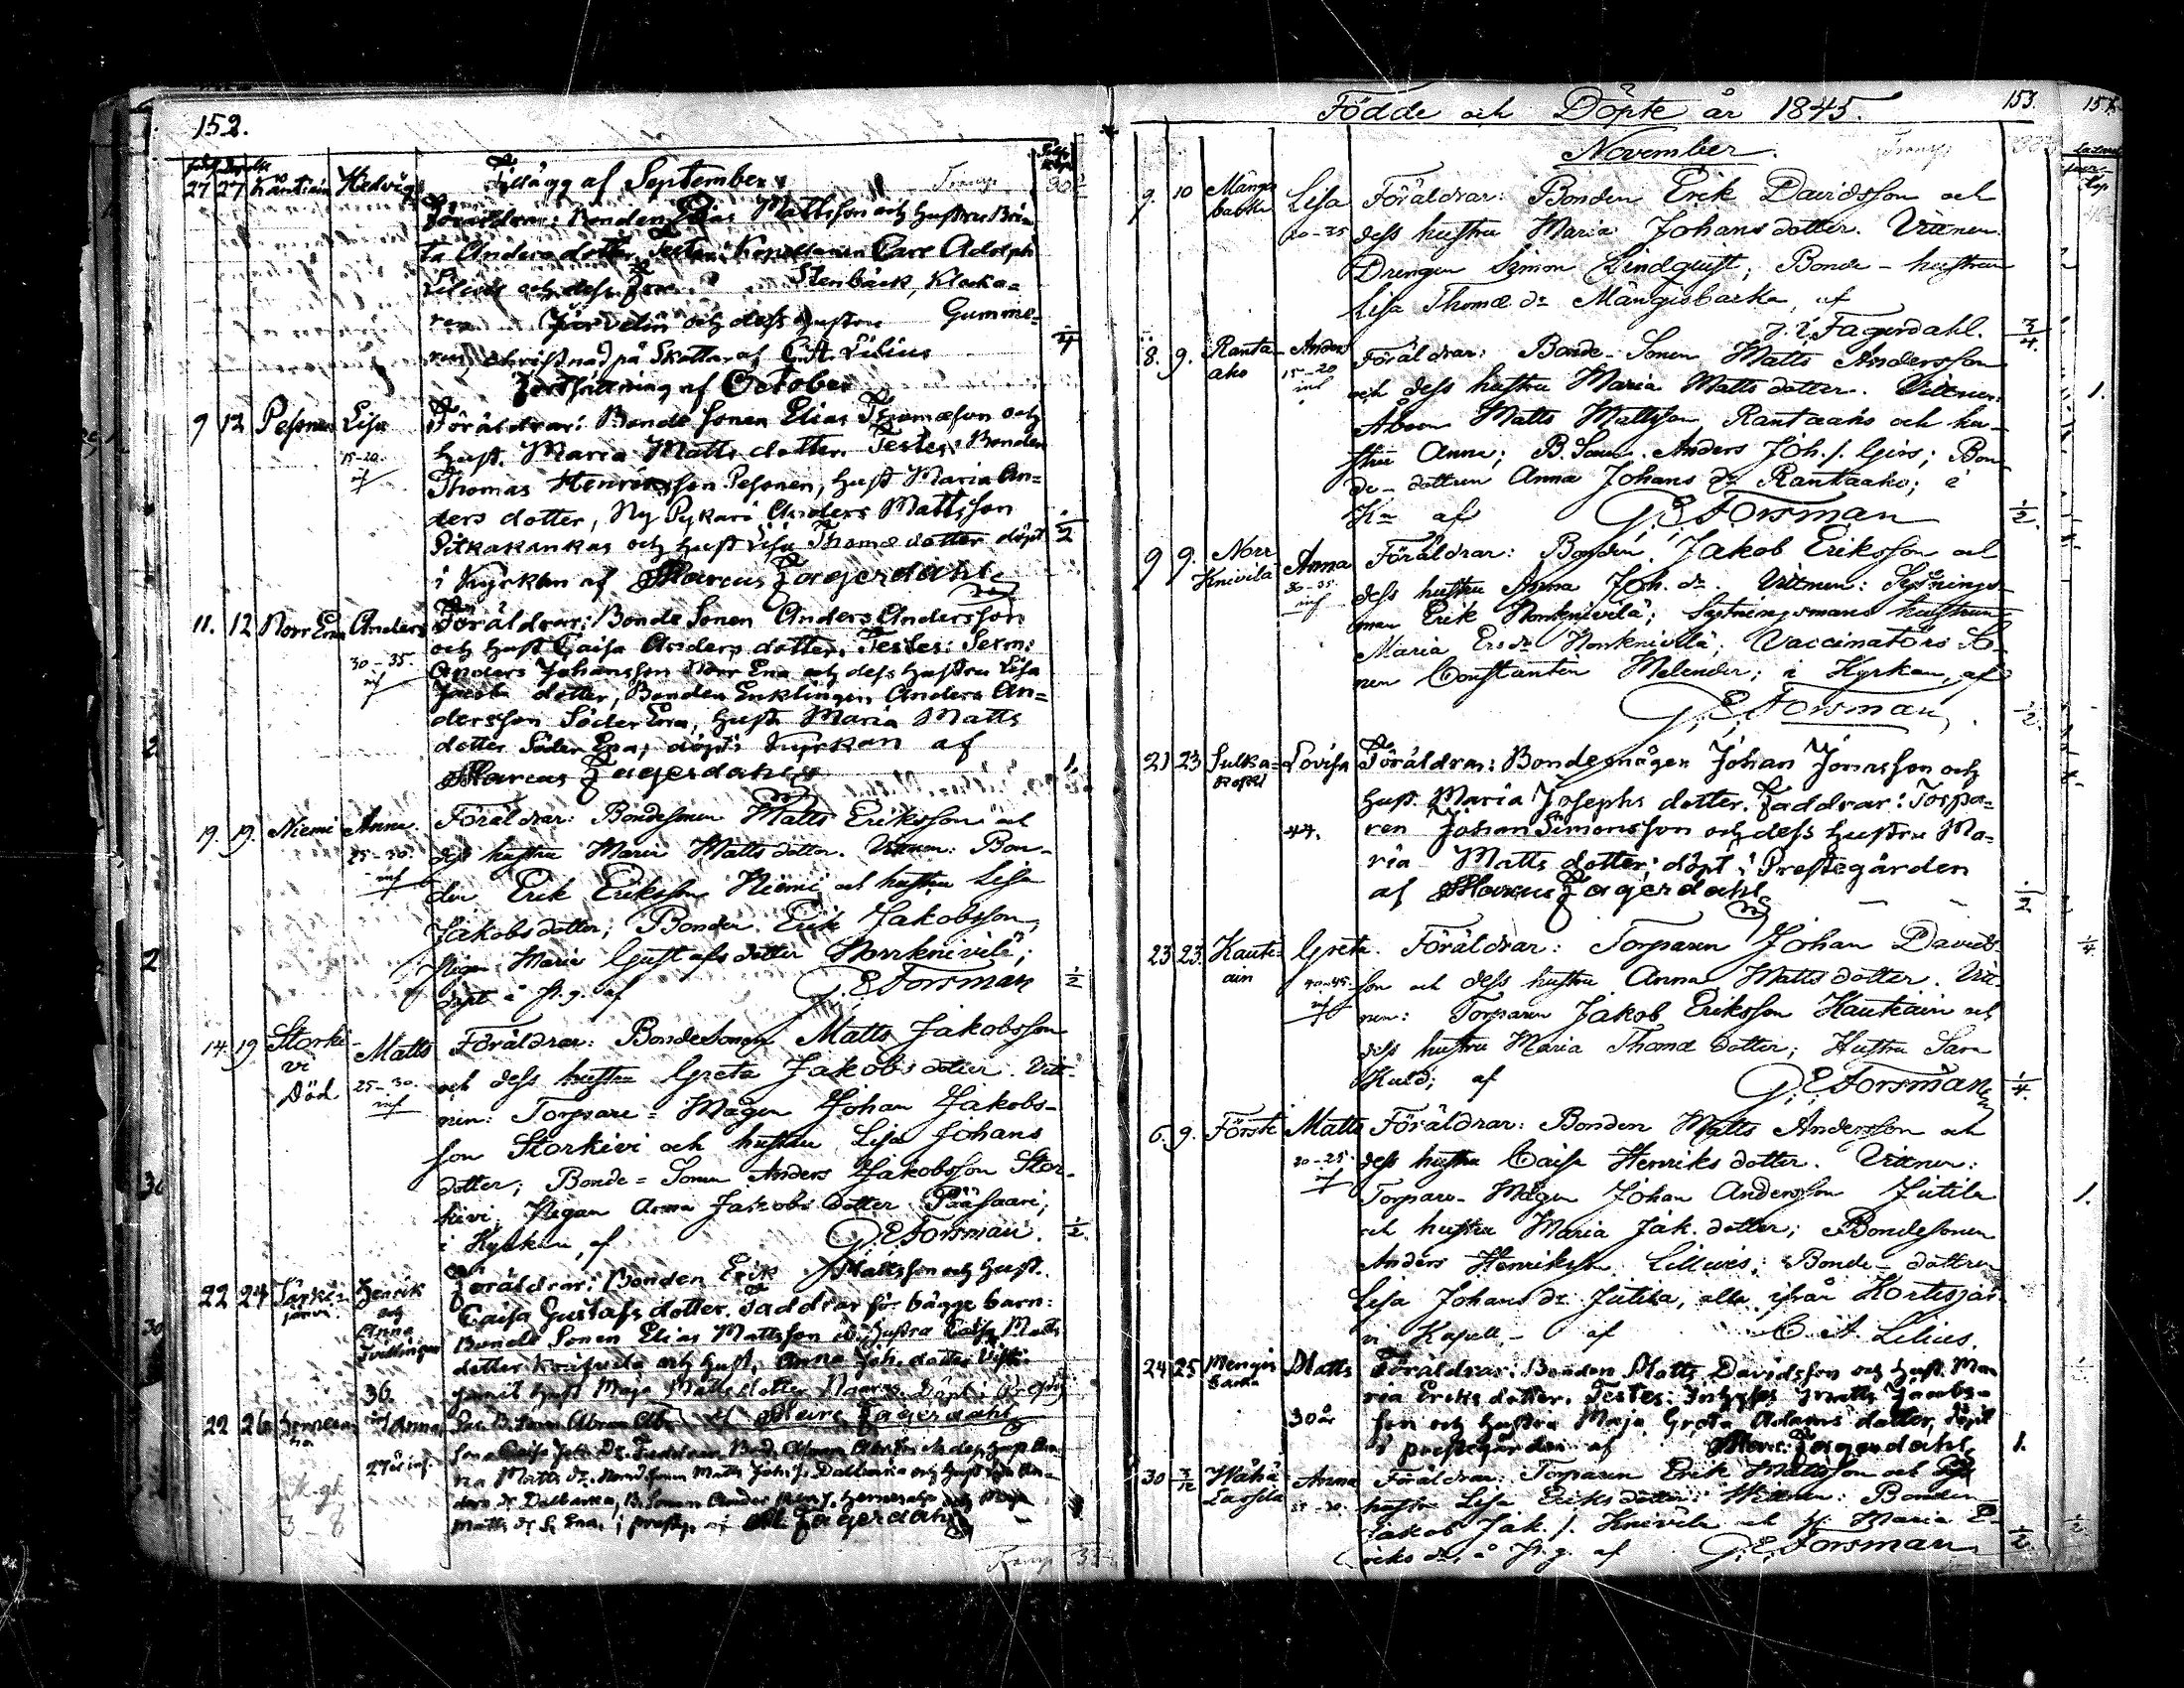 152.
27 27 Hedvig
Tillägg af September
Föräldrar: Bonden Elias Mattsson och hustru Bri=
ta Anders dotter. Testes: Kapellanen Carl Adolph
Lilius och dess Fru Stenbäck, Klocka=
ren Järvelin och dess hustru Gumme=
rus, christnad på Skattar af C. A. Lilius
Fortsättning af October
9 12 Pesonen Lisa Föräldrar: Bonde Sonen Elias Thomasson och
15-20. hust. Maria Matts dotter. Testes: Bonden
Thomas Henriksson Pesonen, hust Maria An=
ders dotter, Ny Pykari Anders Mattsson
Pitkakankas och hust Lisa Thomæ dotter döpt
i Kyrkan af Marcus Fagerdahl
11. 12 Norr Ena Anders Föräldrar: Bonde Sonen Anders Andersson
och hust Caisa Anders dotter. Testes: Sexm:
30-35. Anders Johansson Norr Ena och dess hustru Lisa
Jacobs dotter, Bonden Enklingen Anders An=
dersson Söder Ena, hust Maria Matts
dotter Söder Ena; döpt i Kyrkan af
Marcus Fagerdahl 1.
19. 19. Niemi Anna. Föräldrar: Bondesonen Matts Eriksson och
25-30. dess hustru Maria Matts dotter. Vittnen: Bon-
den Erik Eriksson Niemi och hustru Lisa
Jakobs dotter; Bonden Erik Jakobsson,
Pigan Maria Gustafs dotter Norrknivilä;
döpt i P. g. af G. E. Forsman 1/2
14. 19 Storki- Matts Föräldrar: Bondesonen Matts Jakobsson
vi
Död 25-30. och dess hustru Greta Jakobs dotter. Vitt-
nen: Torpare=Mågen Johan Jakobs-
son Storkivi och hustru Lisa Johans
dotter; Bonde=Sonen Anders Jakobsson Stor-
kivi, Pigan Anna Jakobs dotter Pääsaari;
i Kyrkan, af G. E. Forsman. 1/2.
22 24 Särki= Henrik Föräldrar: Bonden Erik Mattsson och hust.
järvi. och Anna Caisa Gustafs dotter. Faddrar för bägge barn:
Tvillingar Bonde Sonen Elias Mattsson och hustru Caisa Matts
dotter Knivilä och hust. Anna Joh. dotter
36. hust Maja Matts dotter
22 26 Anna af Marc: Fagerdahl
27 år
na Matts dr. Matts Joh. s. Dalbacka och hust
ders dr Dalbacka, B. Sonen Anders
Matts dr S. Ena, i prestg. af M. Fagerdahl
Födde och Döpte år 1845. 153.
November.
9. 10 Mängs Lisa Föräldrar: Bonden Erik Davidsson och
backa 20-25 dess hustru Maria Johans dotter. Vittnen.
Drengen Simon Lindquist, Bonde-hustrun
Lisa Thomæ dr Mängisbacka, af
Fagerdahl. 3/4.
8. 9. Ranta- Anders Föräldrar: Bonde-Sonen Matts Andersson
aho 15-20 och dess hustru Maria Matts dotter. Vittnen:
Åboen Matts Mattsson Rantaaho och hu-
stru Anna; B. Son. Anders Joh. s. Girs; Bon-
de-dottren Anna Johans dr Rantaaho; i
Kn af G. E. Forsman 1/2.
9 9. Norr Anna Föräldrar: Bonden Jakob Eriksson och
Knivilä 30-35. dess hustru Anna Joh. dr. Vittnen: Sextnings-
man Erik Norrknivilä; Sextningsmans hustrun
Maria Ers dr Norrknivilä; Vaccinatörs So-
nen Constantin Melender; i Kyrkan, af
G. E. Forsman 1/2.
21 23 Sulka= Lovisa Föräldrar: Bondemågen Johan Jonasson och
koski hust. Maria Josephs dotter. Faddrar: Torpa=
44. ren Johan Simonsson och dess hustru Ma=
ria Matts dotter; döpt i Prestegården
af Marcus Fagerdahl 1/2
23 23. Kauti- Greta. Föräldrar: Torparen Johan Davids-
ain 40-45. son och dess hustru Anna Matts dotter. Vitt-
nen: Torparen Jakob Eriksson Kautiain och
dess hustru Maria Thomæ dotter; Hustru Sara
Kuld; af G. E. Forsman 1/4.
6. 9. Försti Matts Föräldrar: Bonden Matts Andersson och
20-25. dess hustru Caisa Henriks dotter. Vittnen:
Torpare-Mågen Johan Andersson Jutila
och hustru Maria Jak. dotter; Bondesonen
Anders Henriksson Lillwis; Bonde-dottren
Lisa Johans dr Jutila, alla ifrån Kortesjär-
vi Kapell- af C. A. Lilius.
24 25 Mengis Matts Föräldrar: Bonden Matts Davidsson och hust. Ma-
backa ria Eriks dotter. Testes: Inhyses Matts Jacobs=
30 år son och hustru Maja Greta Adams dotter, döpt
i prestegården af Marc: Fagerdahl 1.
30 3/12 Wähä Anna Föräldrar: Torparen Erik Mattsson och dess
Lassila 25-30. hustru Lisa Eriks dotter. Vittnen: Bonden
Jakob Jak. s. Knivilä och H. Maria E-
riks dr. i P. g. af G. E. Forsman 1/2.